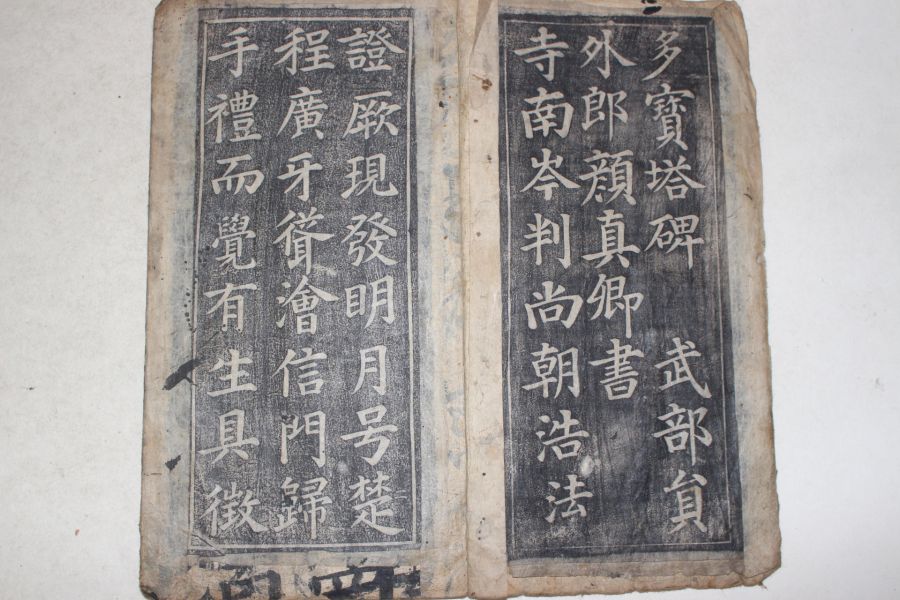 多寶塔碑 武部員
外郎顔真卿書
寺南岑判尚朝浩法
證厥現發明月号楚
程廣牙聳滄信門歸
手禮而覺有生具徵